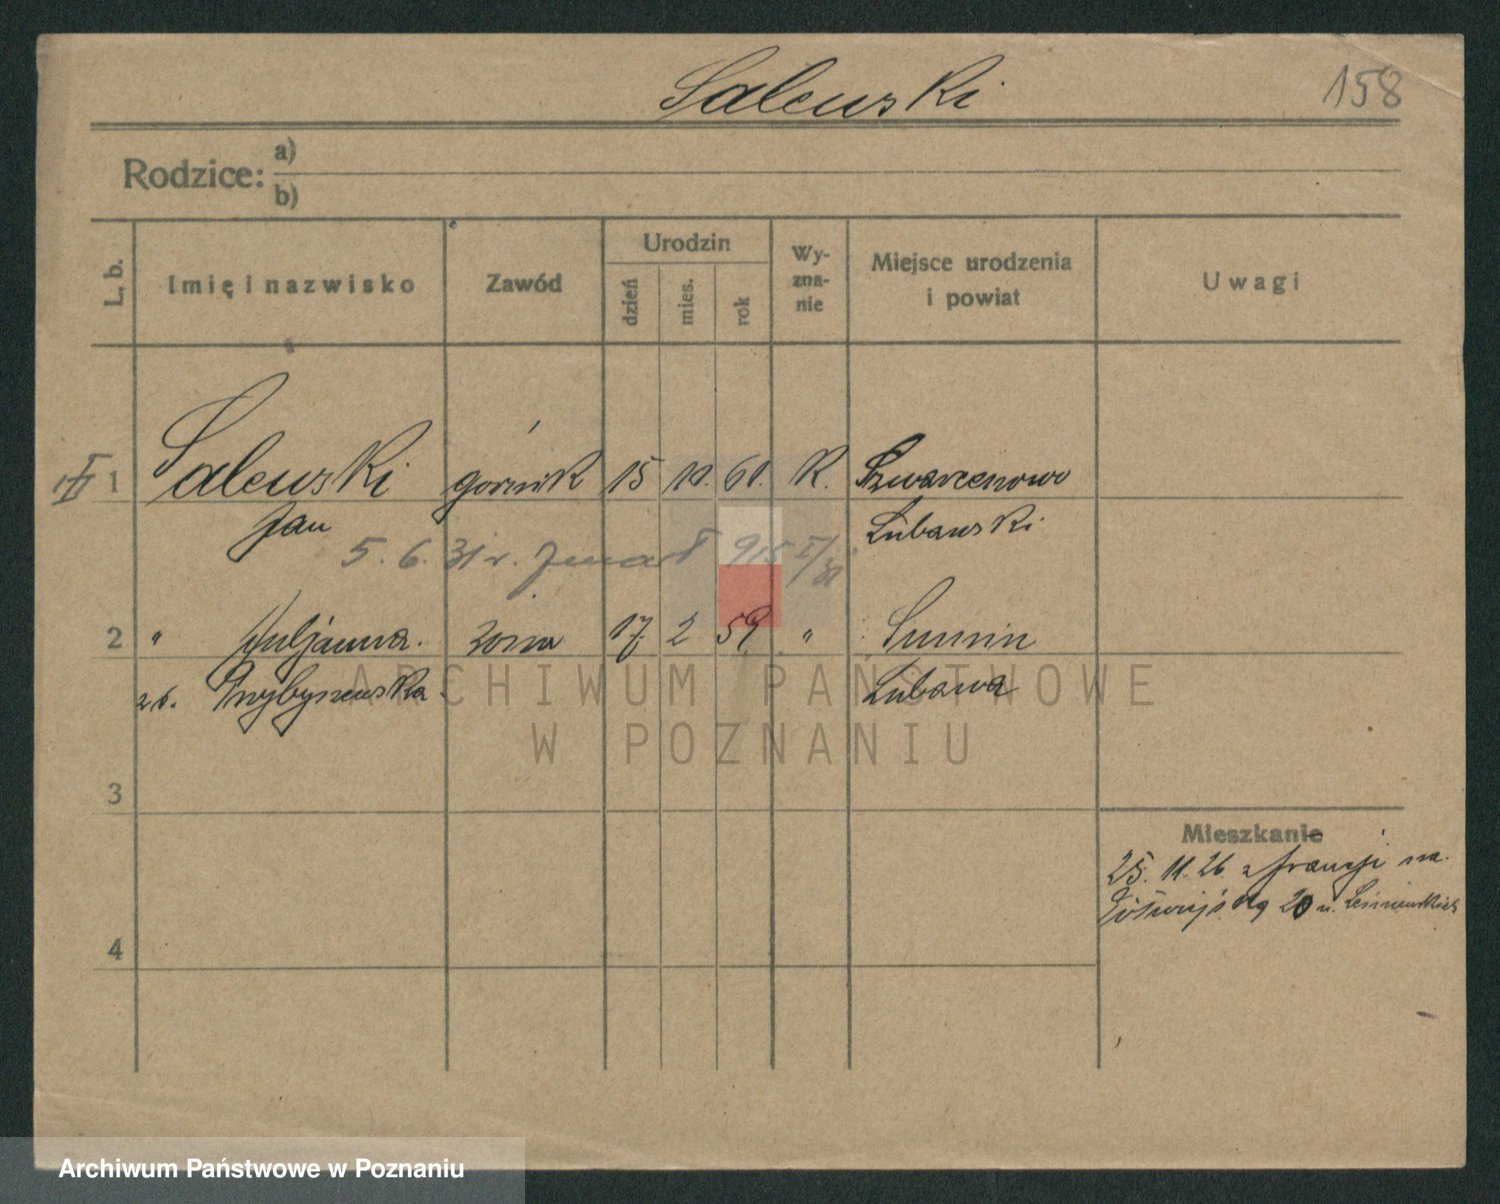 Salewski
158
Rodzice: a)
b)
L. b.
Imię i nazwisko
Zawód
Urodzin
dzień
mies.
rok
Wy-
zna-
nie
Miejsce urodzenia
i powiat
Uwagi
1 Salewski górnik 15 10. 60. K. Szwarcenowo
Jan Lubawski
5. 6. 31 r. zmarł 915 I/31
2 " Juljanna. żona 17. 2 59 " Sumin
z d. Przybyszewska Lubawa
3
Mieszkanie
25. 11. 26. z francji na
20 u.
4
ARCHIWUM PAŃSTWOWE
W POZNANIU
Archiwum Państwowe w Poznaniu